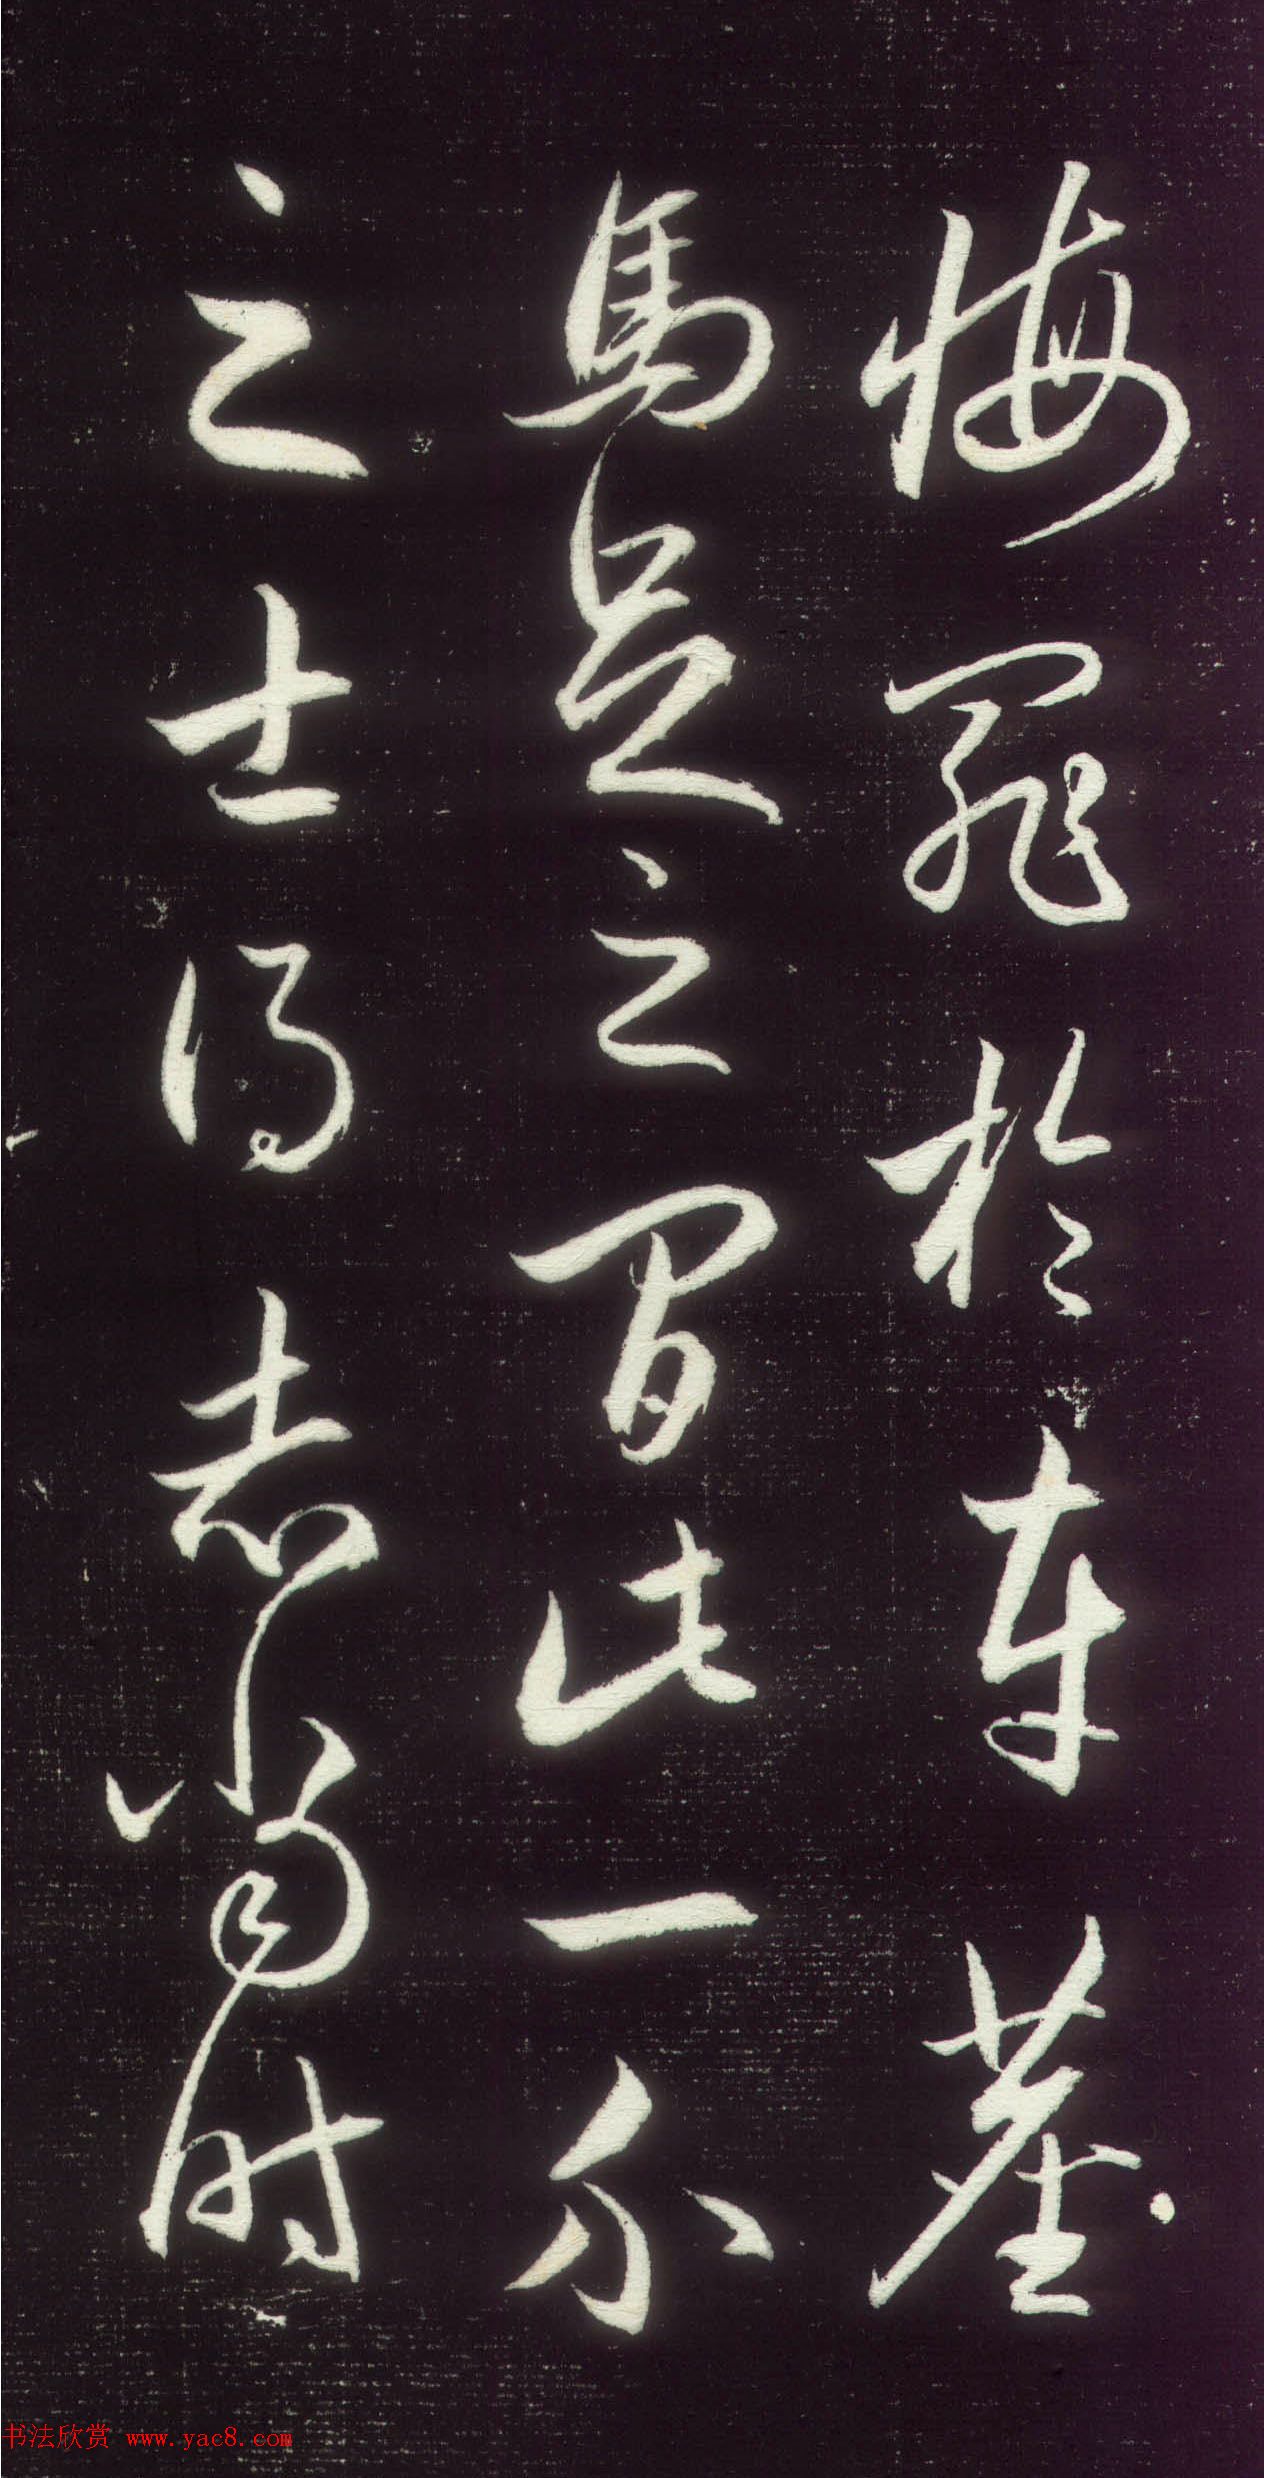 悔罪於車塵
馬足之間此一介
之士得志當時
书法欣赏 www.yac8.com